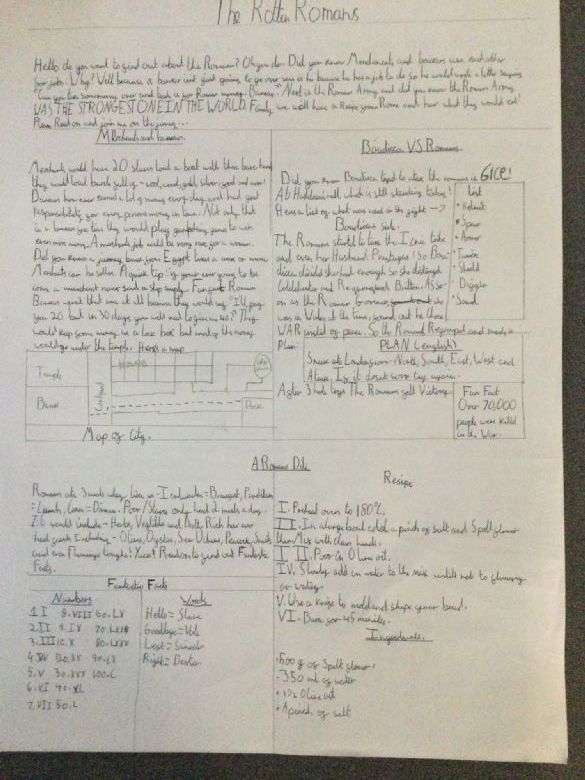 The Rotten Romans
Hello do you want to find out about the Romans? Oh you do. Did you know Merchants and bankers use each other
for jobs. Why? Well because a banker isnt just going to go over seas is he because he has a job to do so he would write a letter saying
"Can you
WAS THE STRONGEST ONE IN THE WORLD. Finaly we will have a Recipe from Rome and hear what they would eat!
Please Read on and join me on the journey...
Merchants and bankers
Merchants would have 20 slaves load a boat with there bare hands
they would load barels full of - wool, wood, gold, silver, food and more!
Bankers how ever earned a lot of money every day and had great
responsibility for every persons money in town. Not only that
is a banker you too they would play gambling game to win
even more mony. A merchants job would be very rare for a woman.
Merchants can be seller. A quick tip: if your ever going to be
come a merchant never send a ship empty. Fun facts Roman
Bankers
you 20 but in 30 days you will need to give me 40? They
would keep some money in a love box but most of the money
would go under the temple. Heres a map
Temple
House
Bank
Docks
Map of City.
Boudicca VS Romans
Did you know Boudicca tryed to atack the romans in 61CE!
At Hadrians wall which is still standing today!
Heres a list of what was used in the fight →
List
• Helmet
• Spear
• Armor
• Tunic
• Shield
• Dagger
• Sword
Boudiccas side.
The Romans started to take the Iceni tribe
and even her Husband Prasutagus! So Bou
dicca decided she had enough so she distroyed
on as the Roman Governer
was in Wales at the time, found out he chose
WAR insted of peace. So the Romand Regrouped and made a
Plan:
PLAN (english)
Sneak at Londinium - North, South, East, West and
Atack. If it dosnt work try again.
After 3 hole days The Romans felt Victory.
Fun Fact
Over 70,000
people were killed
in the War.
A Roman Diet
Romans ate 3 meals a day. Like us - Ientaculum = Breakfast, Prandium
= Lunch, Cena = Dinner. Poor/Slaves only had 2 meals a day.
It would include - Herbs, Vegtibls and Nuts, Rich how ever
had feasts Including - Olives, Oyster, Sea Urchins, Peacock, Snails
and even Flamingo tongue! Yuck! Read on to find out Fantastic
Facts.
Fantastic Facts
Numbers
1. I 8. VIII 60. LX
2. II 9. IX 70. LXX
3. III 10. X 80. LXXX
4. IV 20. XX 90. LX
5. V 30. XXX 100. C
6. VI 40. XL
7. VII 50. L
Words
Hello = Salve
Goodbye = Vale
Left = Sinister
Right = Dexter
Resipe
I. Prehed oven to 180°C.
II. In a large bowl add a pinch of salt and Spelt flower
then Mix with clean hands.
III. Poor in Olive oil.
IV. Slowly add in water to the Mix untill not to flowery
or watery.
V. Use a knife to mold and shape your bread.
VI. Bake for 45 minutes.
Ingredients.
• 500g of Spelt flower
• 350 ml of water
Olive oil
• A pinch of salt